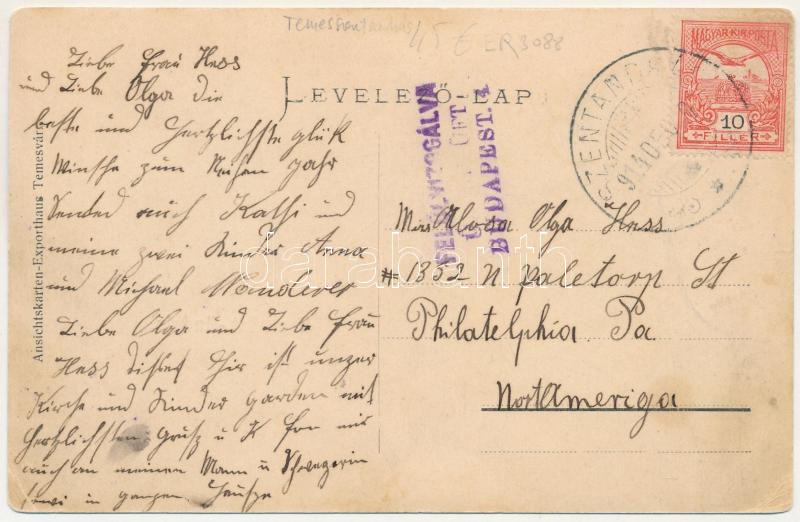 Temesszentandrás 45 € ER3088
LEVELEZŐ-LAP
MAGYAR KIR. POSTA
10
FILLÉR
SZENTANDRÁS
914
FELÜLVIZSGÁLVA
BUDAPEST. 4
Ansichtskarten-Exporthaus Temesvár
Liebe Frau Hess
und Liebe Olga die
beste und Hertzlichste glük
Winsche zum Neihen jahr
Sented euch Kathi und
meine zwei Kinder Anna
und Michael
Liebe Olga und Liebe Frau
Hess Dises hir ist unzer
Kirche und Kinder garden mit
Hertzlichsten Grusz u K fon mir
auch an meinen Mann u Schwegerin
sowi in ganzen Hausze
Miss Olga Hess
#1352 N paletorp St
Philatelphia Pa.
Nort Ameriga
darabanth